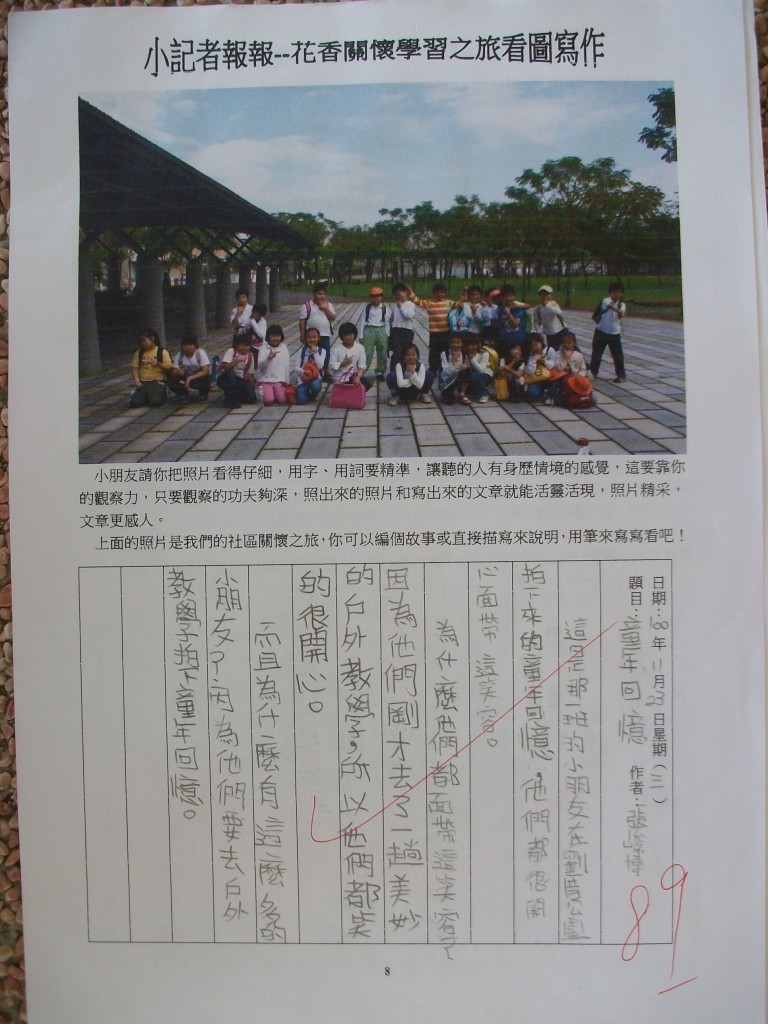 小記者報報--花香關懷學習之旅看圖寫作
小朋友請你把照片看得仔細，用字、用詞要精準，讓聽的人有身歷情境的感覺，這要靠你
的觀察力，只要觀察的功夫夠深，照出來的照片和寫出來的文章就能活靈活現，照片精采，
文章更感人。
上面的照片是我們的社區關懷之旅，你可以編個故事或直接描寫來說明，用筆來寫寫看吧！
日期：100年11月23日星期（三）
題目：童年回憶 作者：張
這是那一班的小朋友在劉厝公園
拍下來的童年回憶，他們都很開
心面帶這笑容。
為什麼他們都面帶這笑容了
因為他們剛才去了一趟美妙
的戶外教學，所以他們都笑
的很開心。
而且為什麼有這麼多的
小朋友了因為他們要去戶外
教學拍下童年回憶。
89
8